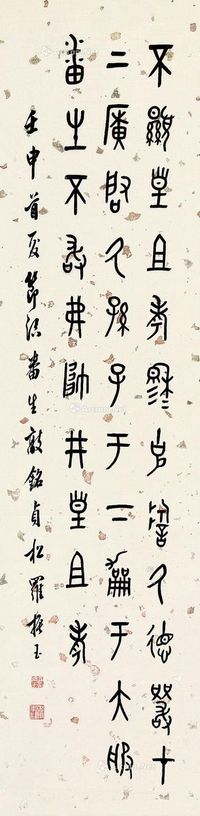 不顯皇且考穆穆克誓氒德嚴才
上廣啟氒孫子于下于大服
番生不敢弗帥井皇且考
壬申首夏節臨番生敦銘貞松羅振玉